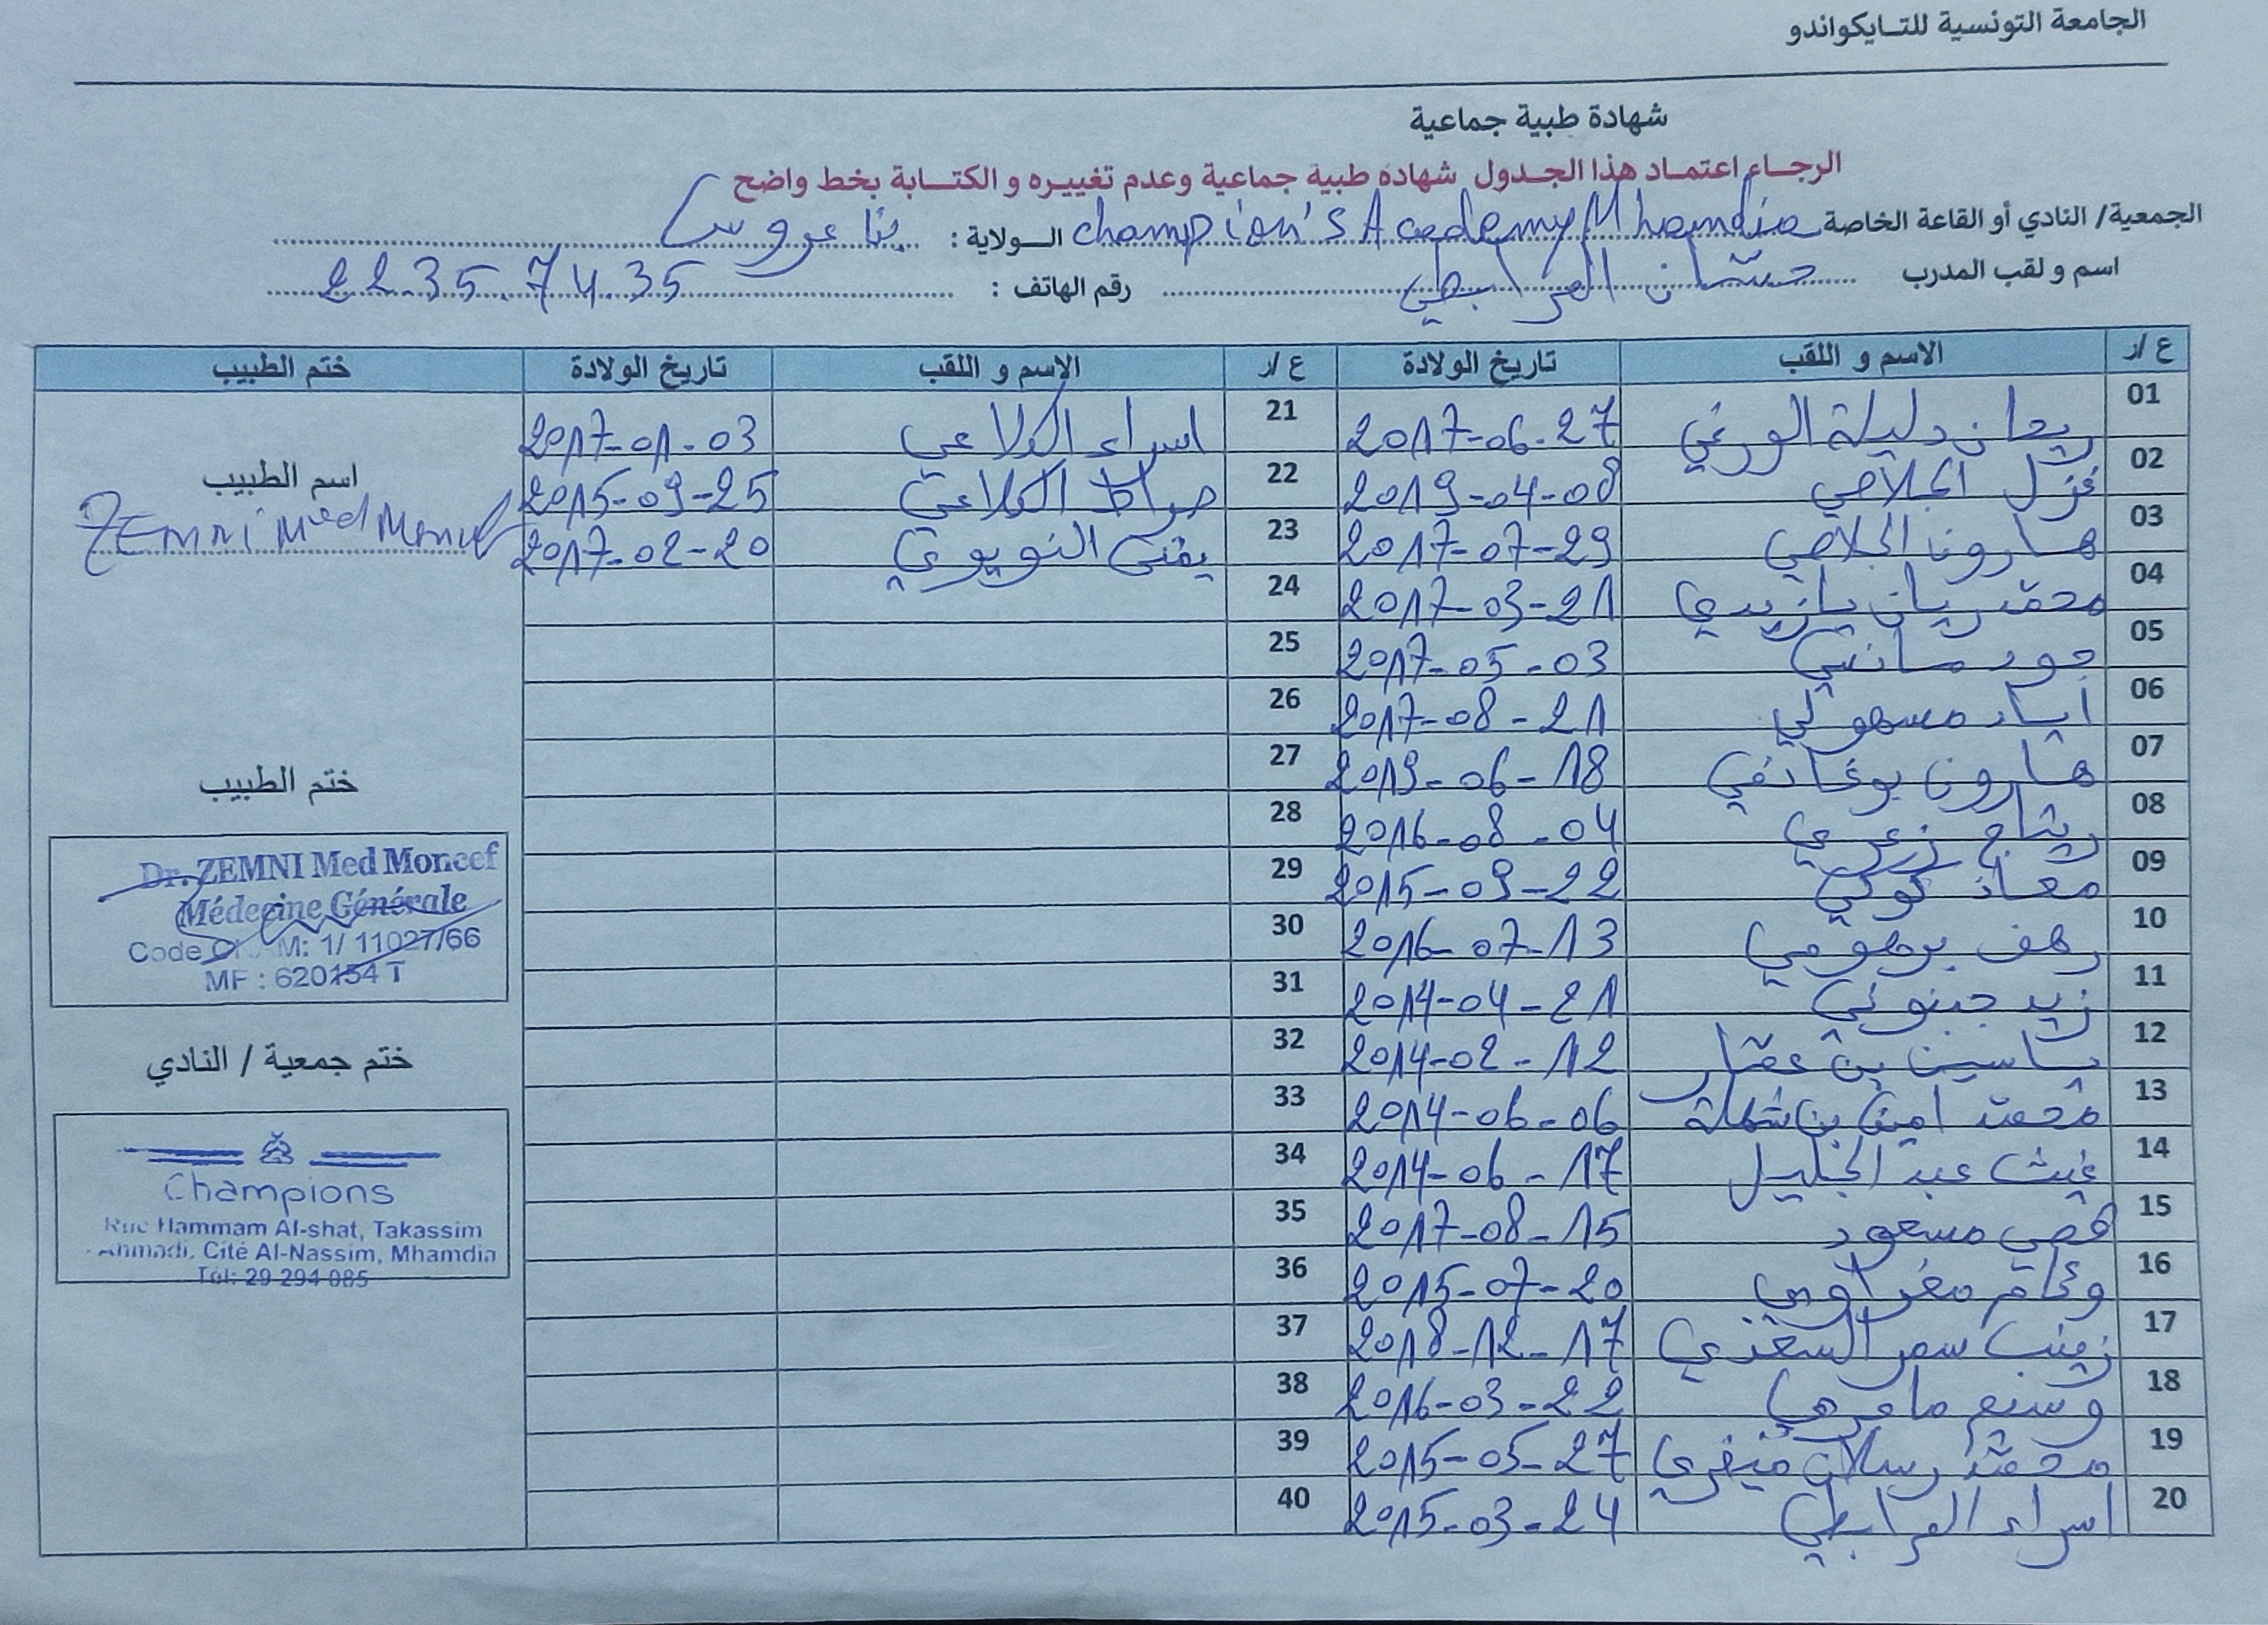 الجامعة التونسية للتايكواندو
شهادة طبية جماعية
الرجاء اعتماد هذا الجدول شهادة طبية جماعية وعدم تغييره و الكتابة بخط واضح
الجمعية/ النادي أو القاعة الخاصة Champion's Academy Mhamdia الولاية : بنا عروس
اسم و لقب المدرب حسّان المرابطي رقم الهاتف : 22.35.74.35
ع /ر الاسم و اللقب تاريخ الولادة ع /ر الاسم و اللقب تاريخ الولادة ختم الطبيب
01 ريحان دليلة الورغي 2017-06-27 21 اسراء الكلاعي 2017-01-03
02 الجلاصي 2019-04-08 22 الكلاعي 2015-09-25
03 هارون الجلاصي 2017-07-29 23 النويوي 2017-02-20
04 محمد ريان يازيدي 2017-03-21 24
05 جود 2017-05-03 25
06 اياد مسهولي 2017-08-21 26
07 هارون بوغانمي 2019-06-18 27
08 ريتاج 2016-08-04 28
09 معاذ كوكي 2015-09-22 29
10 رهف برهومي 2016-07-13 30
11 زيد جبنوني 2014-04-21 31
12 ياسين بن عمّار 2014-02-12 32
13 محمد امين بن شملة 2014-06-06 33
14 غيث عبد الجليل 2014-06-17 34
15 قصي مسعود 2017-08-15 35
16 وئام مغراوي 2015-07-20 36
17 زينب سمر السغزي 2018-12-17 37
18 وسيم ماجري 2016-03-22 38
19 محمّد رسلان 2015-05-27 39
20 اسراء المرابطي 2015-03-24 40
اسم الطبيب
ZEMNI Med Moncef
ختم الطبيب
Dr. ZEMNI Med Moncef
Médecine Générale
Code CNAM: 1/ 11027/66
MF : 620154 T
ختم جمعية / النادي
Champions
Rue Hammam Al-shat, Takassim
Ahmadi, Cité Al-Nassim, Mhamdia
Tél: 29 294 085